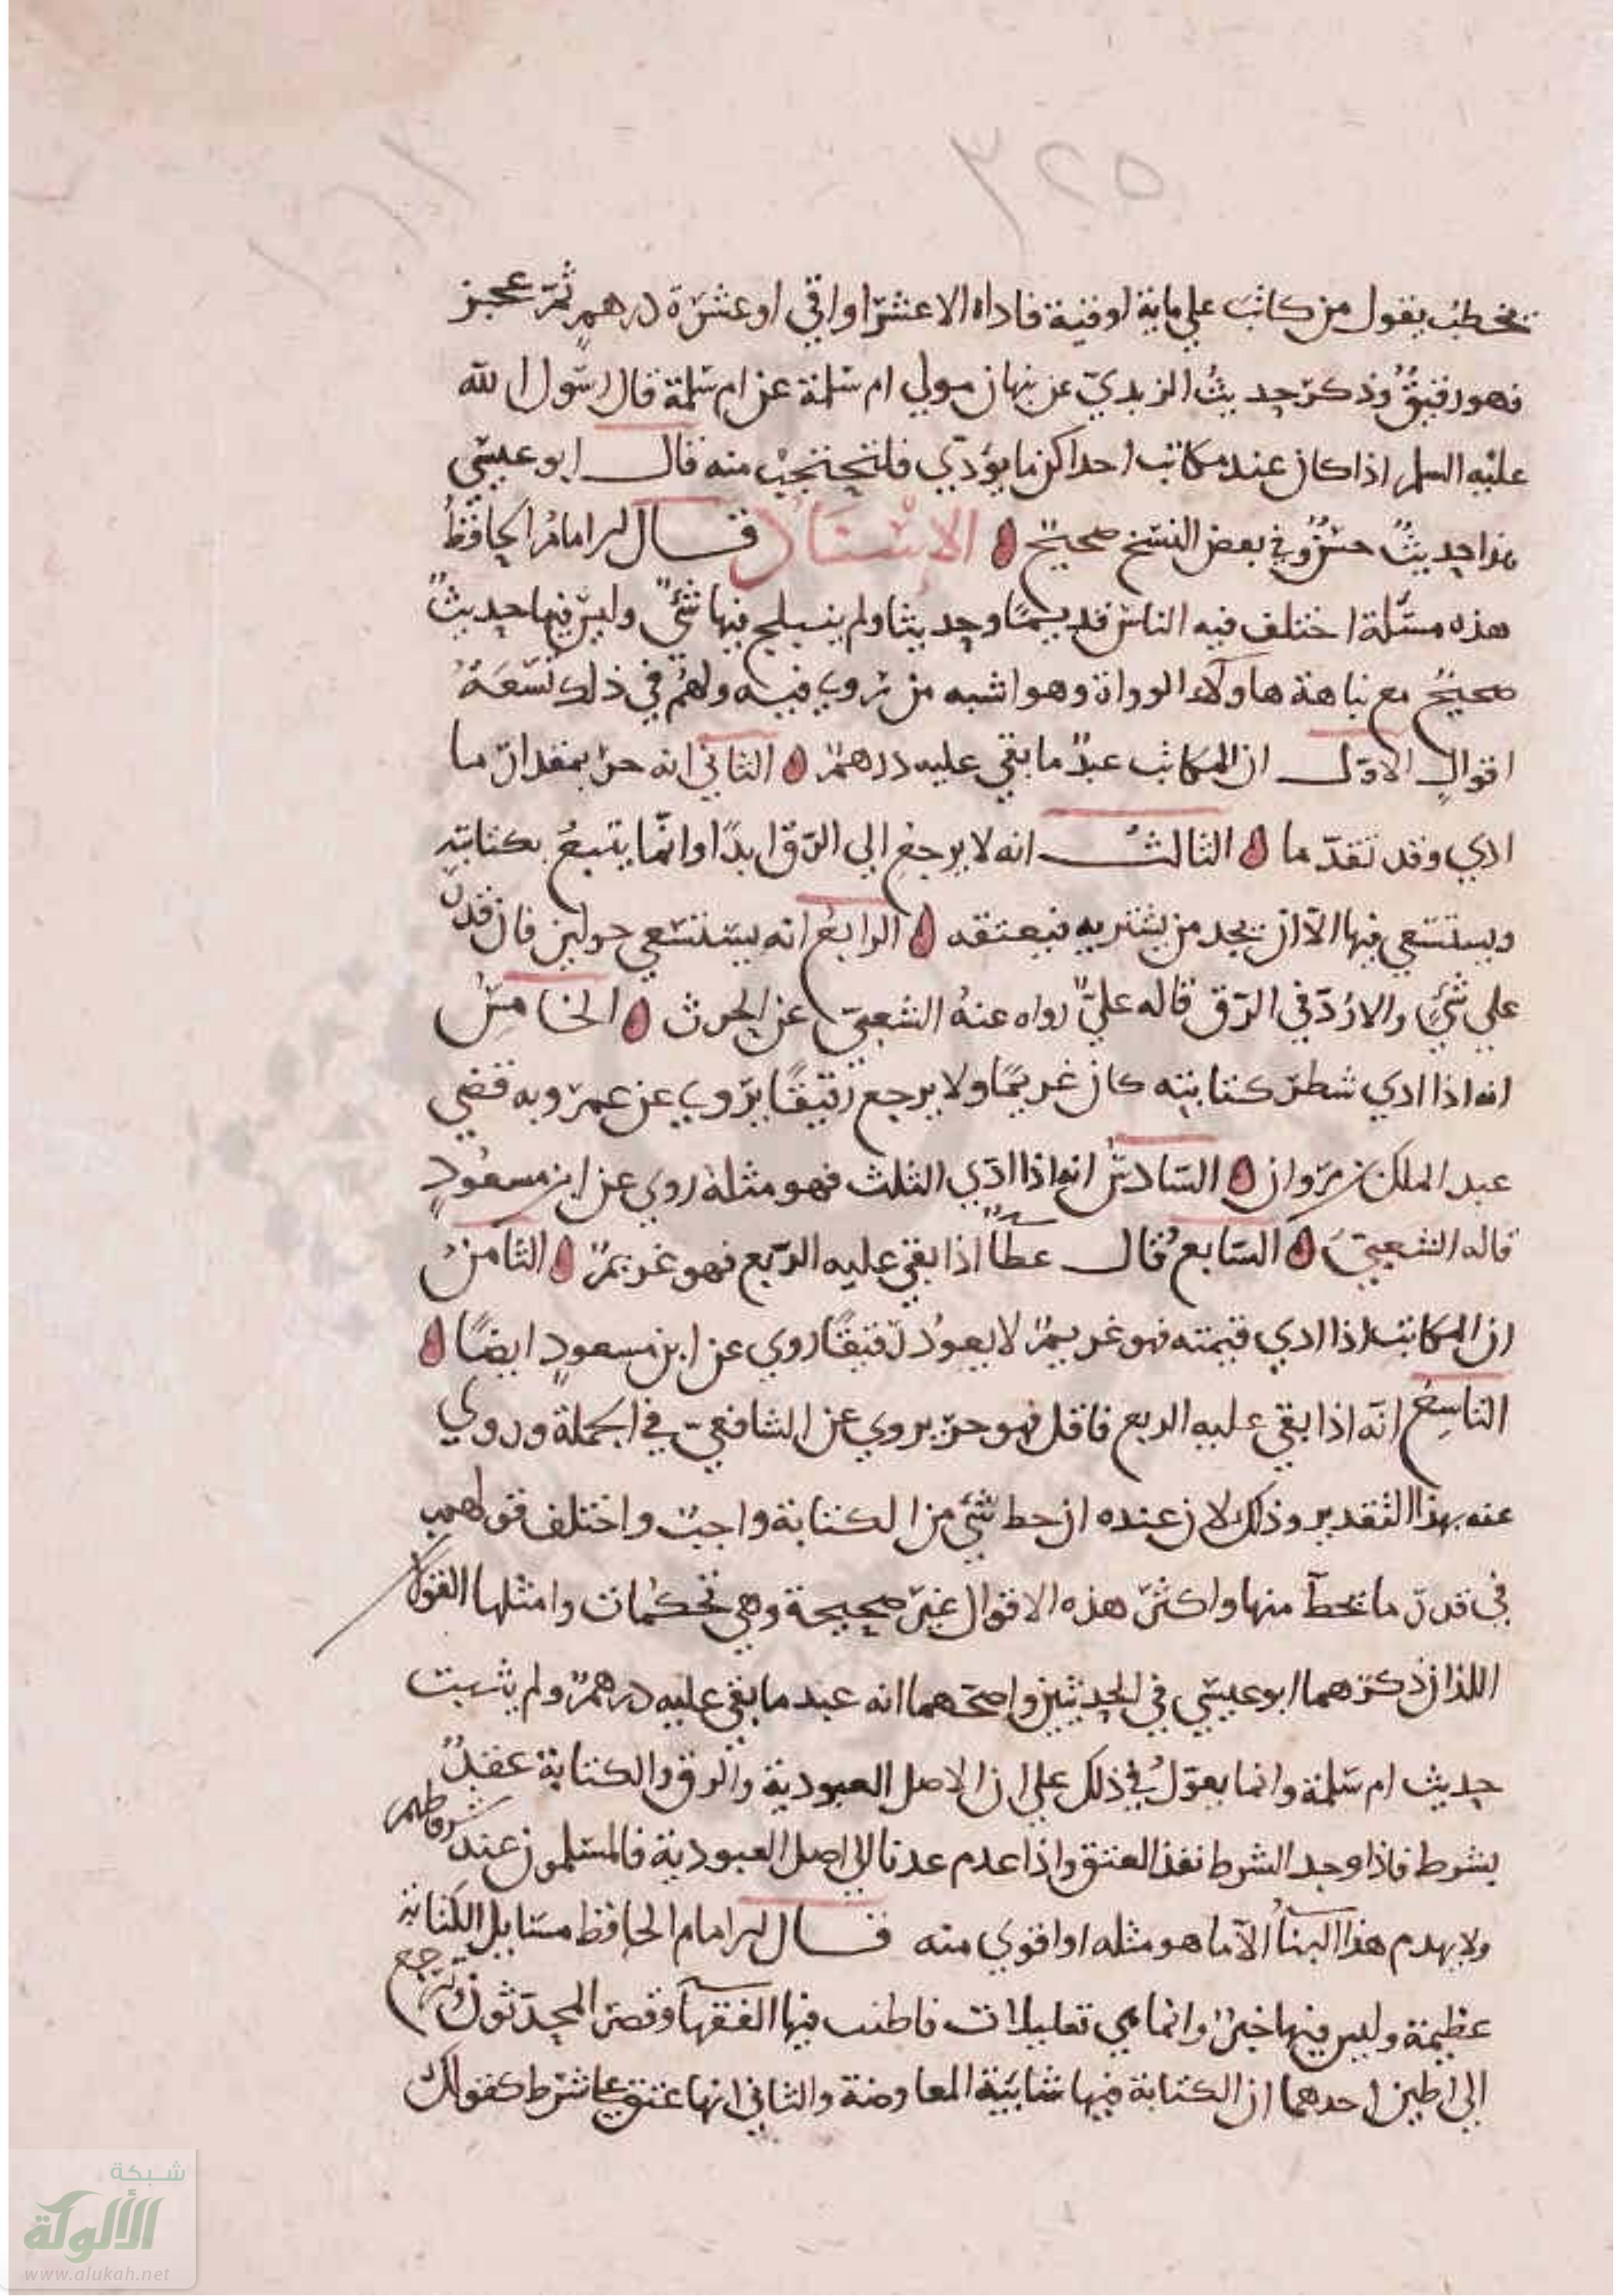 ٣٢٥
يخطب يقول من كاتب علي ماية اوقية فاداه الا عشرا اواقي او عشرة درهم ثم عجز
فهو رقيق وذكر حديث الزهدي عن نبهان مولي ام سلمة عن ام سلمة قال رسول الله
عليه السلم اذا كان عند مكاتب احداكن ما يؤدي فلتحتجب منه قال ابو عيسي
هذا حديث حسن وفي بعض النسخ صحيح الاسناد قال الامام الحافظ
هذه مسئلة اختلف فيه الناس قديما وحديثا ولم ينسلح فيها شئ وليس فيها حديث
صحيح مع نباهة هاولاء الرواة وهو اشبه من روي فيه ولهم في ذلك تسعة
اقوال الاول ان المكاتب عبد ما بقي عليه درهم الثاني انه حر بمقدار ما
ادي وقد تقدما الثالث انه لا يرجع الي الرق ابدا وانما يتبع بكتابته
ويستسعي فيها الا ان يجد من يشتريه فيعتقه الرابع انه يستسعي حولين فان قدر
علي شئ والا رد في الرق قاله علي رواه عنه الشعبي عن الحرث الخامس
انه اذا ادي شطر كتابته كان غريما ولا يرجع رقيقا يروي عن عمر وبه قضي
عبد الملك بن مروان السادس انه اذا ادي الثلث فهو مثله روي عن ابن مسعود
قاله الشعبي السابع قال عطآ اذا بقي عليه الربع فهو غريم الثامن
ان المكاتب اذا ادي قيمته فهو غريم لا يعود رقيقا روي عن ابن مسعود ايضا
التاسع انه اذا بقي عليه الربع فاقل فهو حر يروي عن الشافعي في الجملة وروي
عنه بهذا التقدير وذلك لان عنده ان حط شئ من الكتابة واجب واختلف قولهم
في قدر ما يحط منها واكثر هذه الاقوال غير صحيحة وهي تحكمات وامثلها القولا
اللذان ذكرهما ابو عيسي في الحديثين واصحهما انه عبد ما بقي عليه درهم ولم يثبت
حديث ام سلمة وانما يعول في ذلك علي ان الاصل العبودية والرق والكتابة عقد
بشرط فاذا وجد الشرط نفذ العتق واذا عدم عدنا الي اصل العبودية فالمسلمون عند شروطهم
ولا يهدم هذا البنآ الا ما هو مثله او اقوي منه قال الامام الحافظ مسايل الكتابة
عظيمة وليس فيها خبر وانما هي تعليلات فاطنب فيها الفقهآ وقصر المحدثون وترجع
الي اصلين احدهما ان الكتابة فيها شايبة المعاوضة والثاني انها عتق علي شرط كقولك
شبكة
الألوكة
www.alukah.net